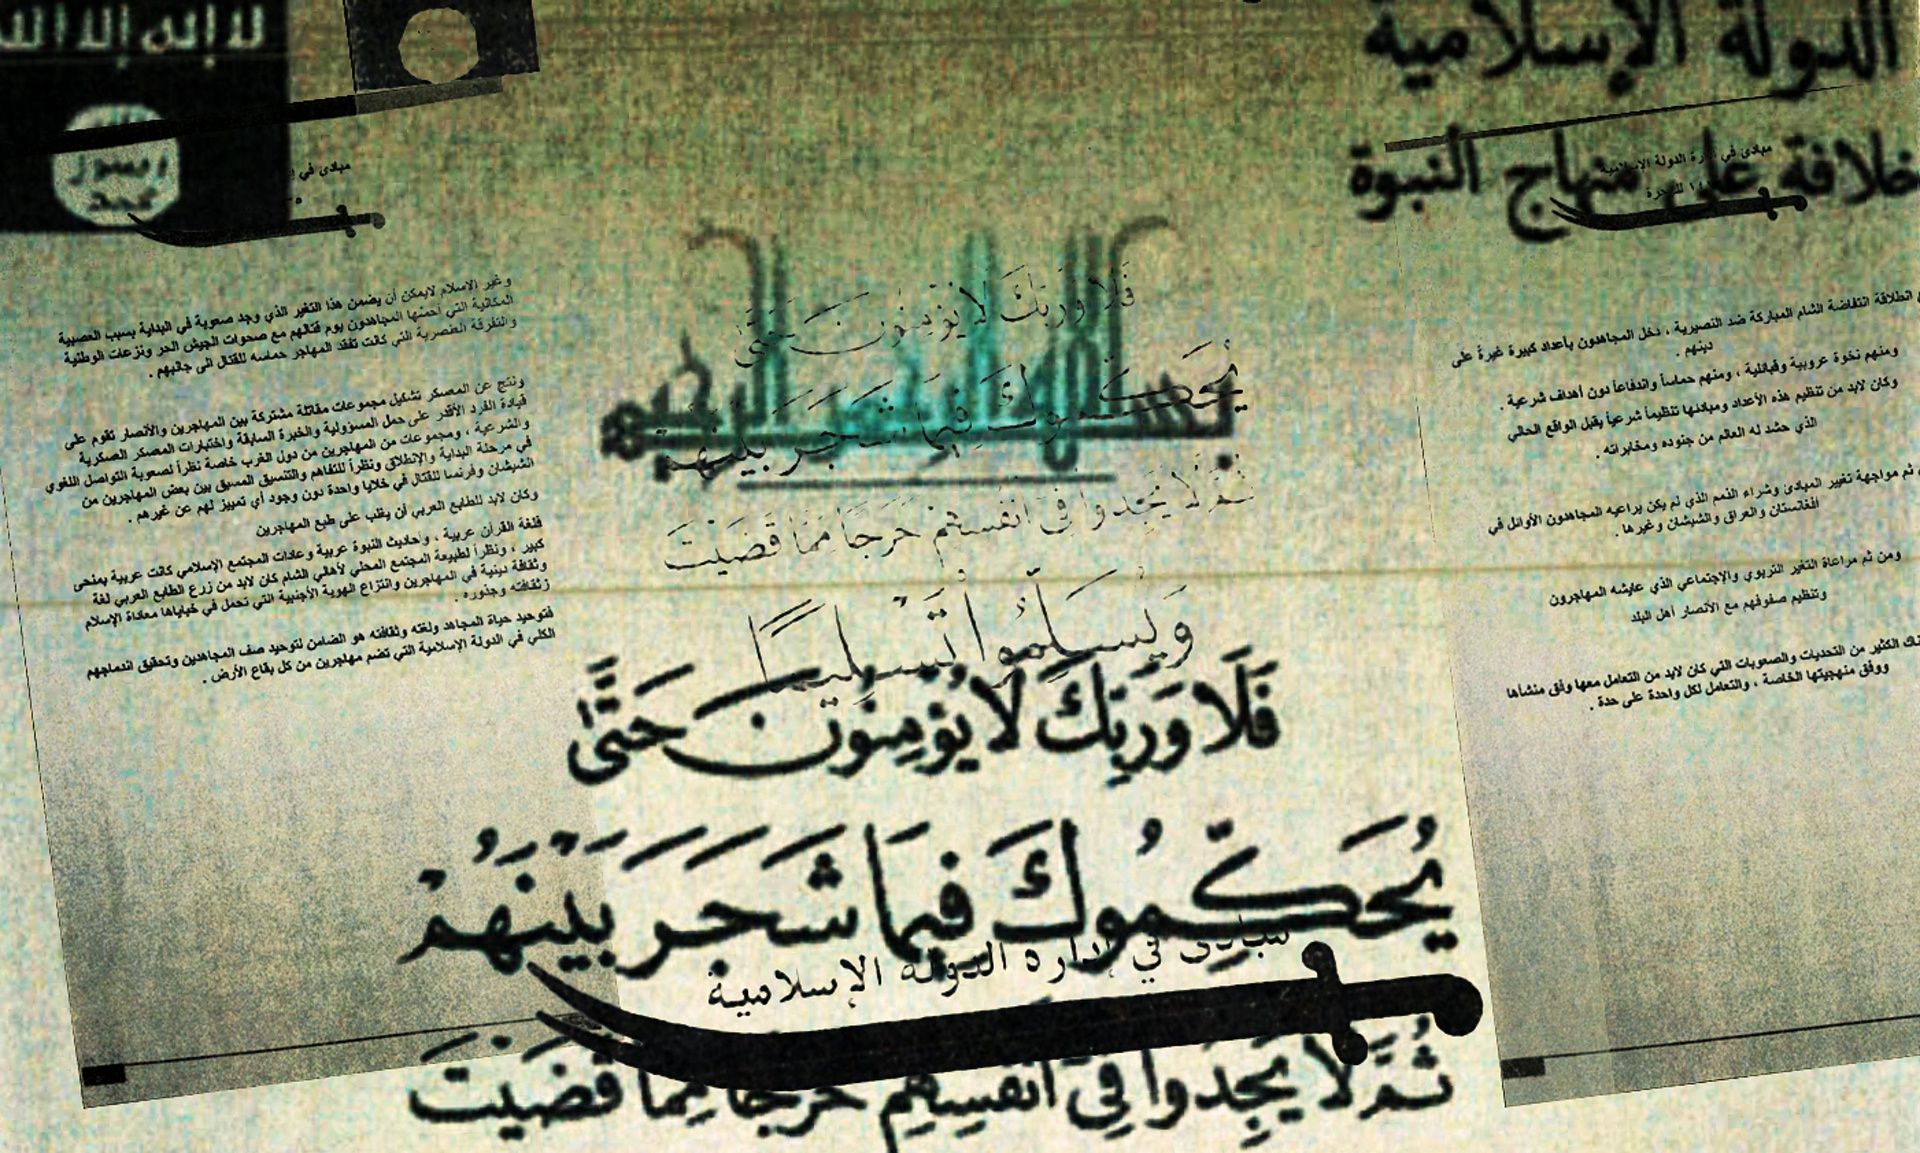 لا إله إلا الله
الله
رسول
محمد
الدولة الإسلامية
خلافة على منهاج النبوة
مبادئ في
مبادئ في إدارة الدولة الإسلامية
بسم الله الرحمن الرحيم
فَلَا وَرَبِّكَ لَا يُؤْمِنُونَ حَتَّىٰ
يُحَكِّمُوكَ فِيمَا شَجَرَ بَيْنَهُمْ
ثُمَّ لَا يَجِدُوا فِي أَنفُسِهِمْ حَرَجًا مِّمَّا قَضَيْتَ
وَيُسَلِّمُوا تَسْلِيمًا
انطلاقة انتفاضة الشام المباركة ضد النصيرية ، دخل المجاهدون بأعداد كبيرة غيرة على
دينهم .
ومنهم نخوة عروبية وقبائلية ، ومنهم حماساً واندفاعاً دون أهداف شرعية .
وكان لابد من تنظيم هذه الأعداد ومبادئها تنظيماً شرعياً يقبل الواقع الحالي
الذي حشد له العالم من جنوده ومخابراته .
ثم مواجهة تغيير المبادئ وشراء الذمم الذي لم يكن يراعيه المجاهدون الأوائل في
أفغانستان والعراق والشيشان وغيرها .
ومن ثم مراعاة التغير التربوي والإجتماعي الذي عايشه المهاجرون
وتنظيم صفوفهم مع الأنصار أهل البلد
الكثير من التحديات والصعوبات التي كان لابد من التعامل معها وفق منشأها
ووفق منهجيتها الخاصة ، والتعامل لكل واحدة على حدة .
وغير الإسلام لايمكن أن يضمن هذا التغير الذي وجد صعوبة في البداية بسبب العصبية
المكانية التي أحسنها المجاهدون يوم قتالهم مع صحوات الجيش الحر ونزعات الوطنية
والتفرقة العنصرية التي كانت تفقد المهاجر حماسه للقتال الى جانبهم .
ونتج عن المعسكر تشكيل مجموعات مقاتلة مشتركة بين المهاجرين والأنصار تقوم على
قيادة الفرد الأقدر على حمل المسؤولية والخبرة السابقة واختبارات المعسكر العسكرية
والشرعية ، ومجموعات من المهاجرين من دول الغرب خاصة نظراً لصعوبة التواصل اللغوي
في مرحلة البداية والإنطلاق ونظراً للتفاهم والتنسيق المسبق بين بعض المهاجرين من
الشيشان وفرنسا للقتال في خلايا واحدة دون وجود أي تمييز لهم عن غيرهم .
وكان لابد للطابع العربي أن يغلب على طبع المهاجرين
فلغة القرآن عربية ، وأحاديث النبوة عربية وعادات المجتمع الإسلامي كانت عربية بمنحى
كبير ، ونظراً لطبيعة المجتمع المحلي لأهالي الشام كان لابد من زرع الطابع العربي لغة
وثقافة دينية في المهاجرين وانتزاع الهوية الأجنبية التي تحمل في خباياها معاداة الإسلام
وثقافته وجذوره .
فتوحيد حياة المجاهد ولغته وثقافته هو الضامن لتوحيد صف المجاهدين وتحقيق اندماجهم
الكلي في الدولة الإسلامية التي تضم مهاجرين من كل بقاع الأرض .
فَلَا وَرَبِّكَ لَا يُؤْمِنُونَ حَتَّىٰ
يُحَكِّمُوكَ فِيمَا شَجَرَ بَيْنَهُمْ
مبادئ في إدارة الدولة الإسلامية
ثُمَّ لَا يَجِدُوا فِي أَنفُسِهِمْ حَرَجًا مِّمَّا قَضَيْتَ